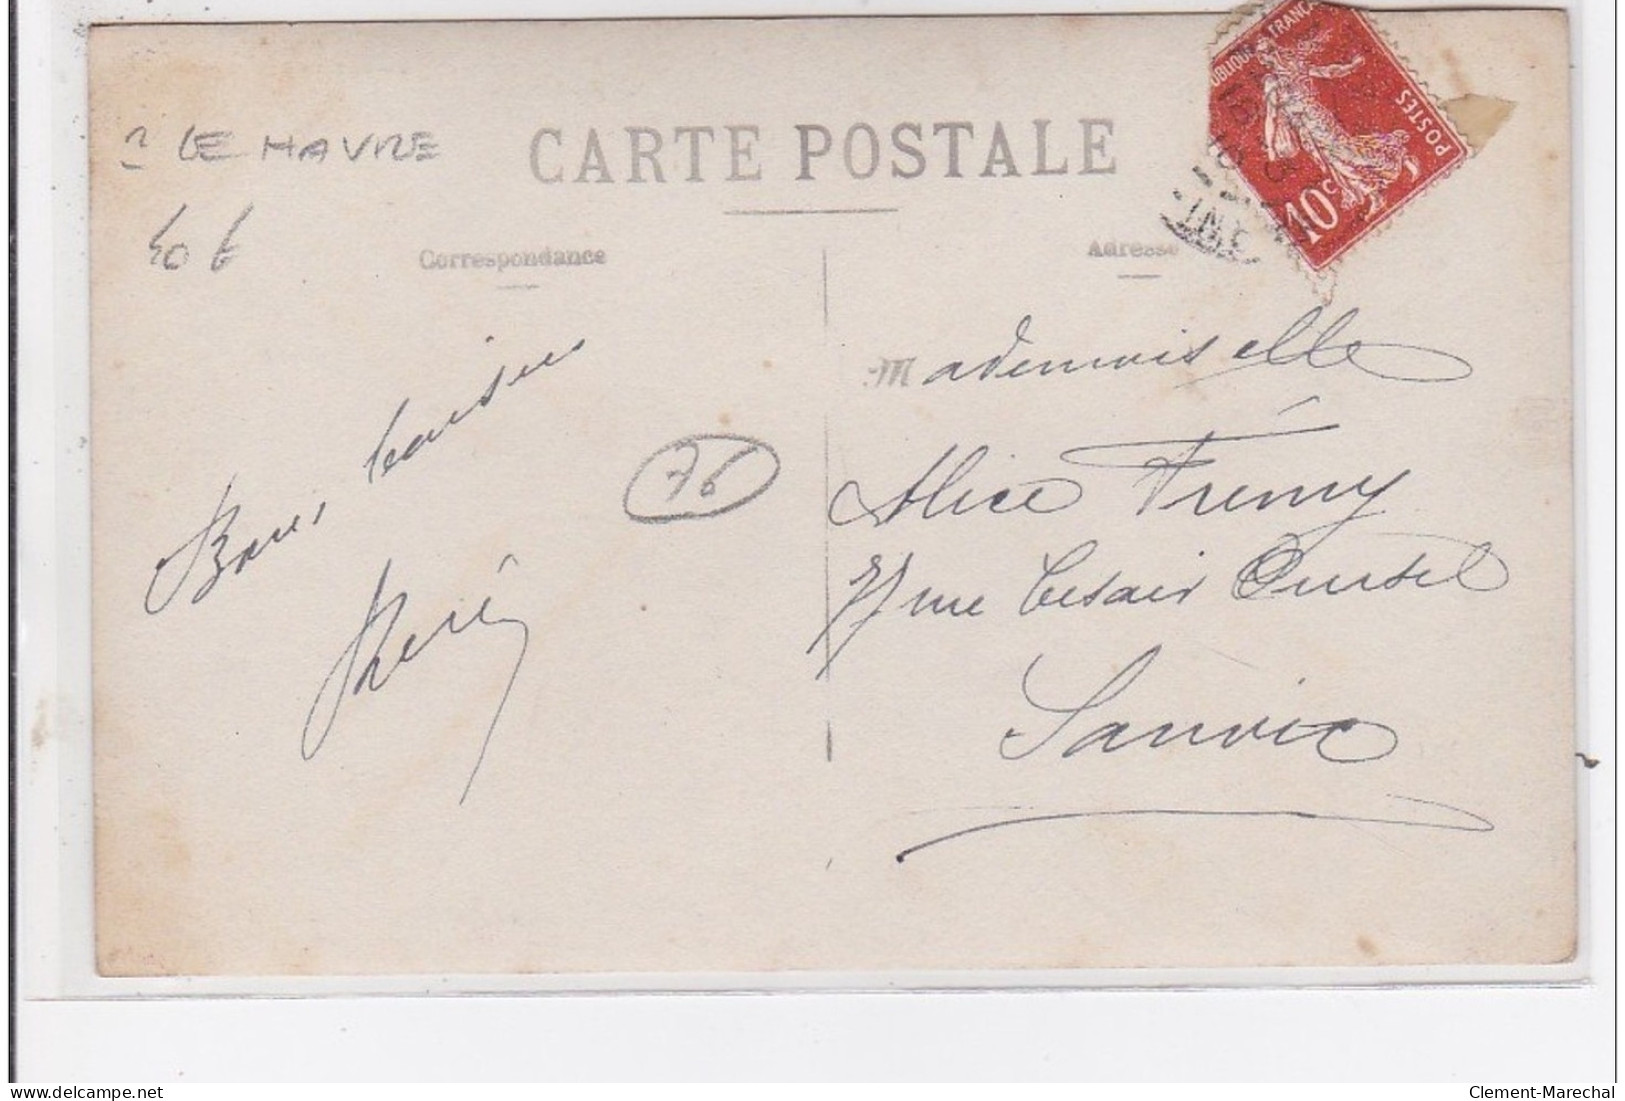 ? LE HAVRE
40 €
CARTE POSTALE
Correspondance
Adresse
RÉPUBLIQUE FRANÇAISE
POSTES
10c
Bons baisers
René
76
Mademoiselle
Alice Frémy
rue Césaire Oursel
Sanvic
delcampe.net
Clement-Marechal